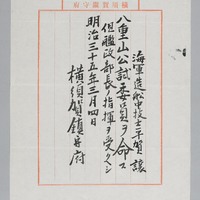 横須賀鎮守府
海軍造船中技士平賀譲
八重山公試委員ヲ命ス
但艦政部長ノ指揮ヲ受クヘシ
明治三十五年三月四日
横須賀鎮守府